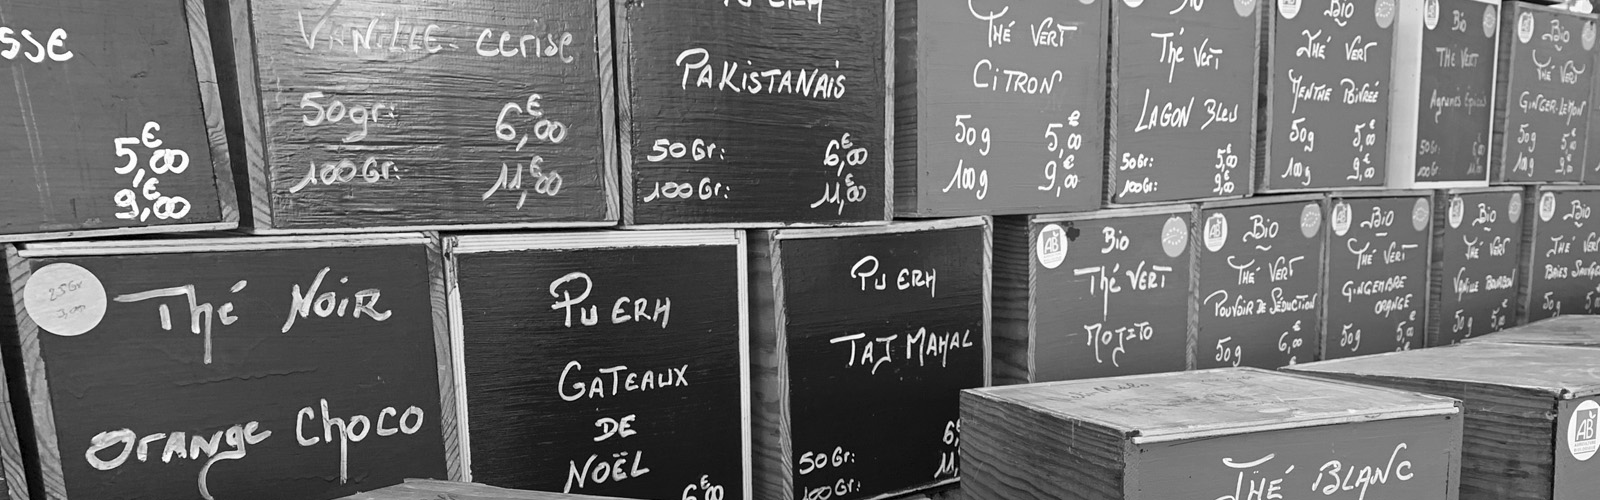 SSE
5,€00
9,€00
VANILLE-CERISE
50gr: 6,€00
100Gr: 11,€00
PU ERH
PAKISTANAIS
50Gr: 6,€00
100Gr: 11,€00
THÉ VERT
CITRON
50g 5,€00
100g 9,€00
Thé Vert
LAGON Bleu
50Gr: 5,€00
100Gr: 9,€00
Bio
THÉ VERT
MENTHE POIVRÉE
50g 5,€00
100g 9,€00
Bio
THÉ VERT
Agrumes
Bio
THÉ VERT
GINGER-LEMON
50g 5,€00
100g 9,€00
25Gr
THÉ NOIR
ORANGE CHOCO
PU ERH
GATEAUX
DE
NOËL
6,€00
PU ERH
TAJ MAHAL
50Gr: 6,
100Gr: 11,
AB
Bio
Thé VERT
MOJITO
AB
Bio
THÉ VERT
POUVOIR DE SÉDUCTION
50g 6,€00
Bio
THÉ VERT
GINGEMBRE
ORANGE
50g 5,€00
Bio
THÉ VERT
VANILLE BOURBON
50g 5,€
Bio
THÉ VERT
BAIES SAUVAG
50g 5
THÉ BLANC
AB